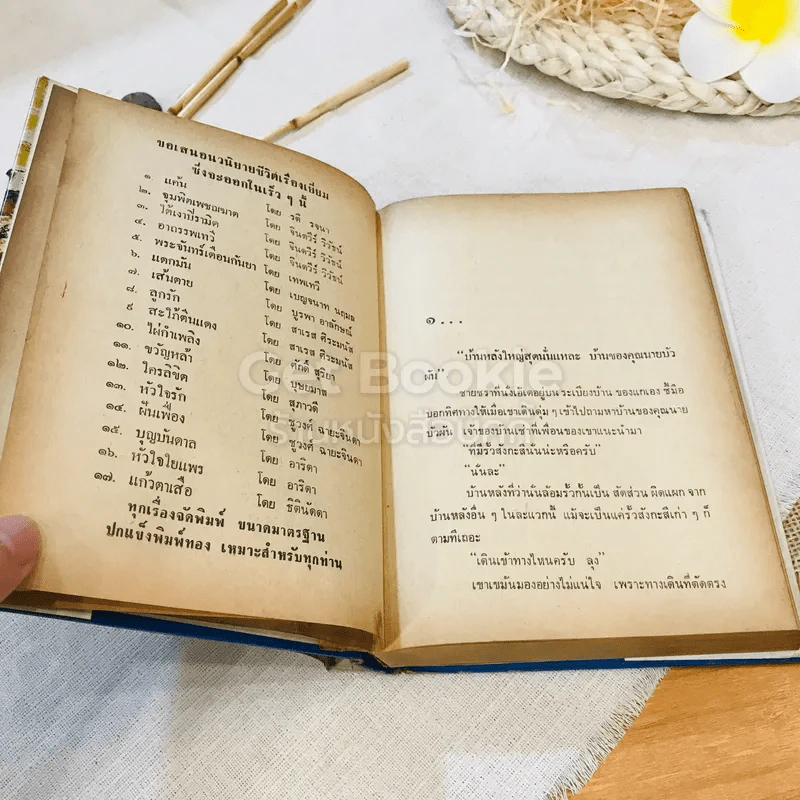 ขอเสนอนวนิยายชีวิตเรื่องเยี่ยม
ซึ่งจะออกในเร็ว ๆ นี้
๑ แค้น โดย รตี รจนา
๒. จุมพิตเพชฌฆาต โดย จินตวีร์ วิวัธน์
๓. ใต้เงาปิรามิด โดย จินตวีร์ วิวัธน์
๔. อาถรรพเทวี โดย จินตวีร์ วิวัธน์
๕. พระจันทร์เดือนกันยา โดย เทพเทวี
๖. แตกมัน โดย เบญจนาท นฤมล
๗. เส้นตาย โดย บูรพา อาลักษณ์
๘. ลูกรัก โดย สาเรส ศิระมนัส
๙ สะใภ้ตีนแดง โดย สาเรส ศิระมนัส
๑๐. ไผ่กำเพลิง โดย ศักดิ์ สุริยา
๑๑. ขวัญหล้า โดย บุษยมาส
๑๒. ใครลิขิต โดย สุภาวดี
๑๓. หัวใจรัก โดย ชูวงศ์ ฉายะจินดา
๑๔. ฝันเฟื่อง โดย ชูวงศ์ ฉายะจินดา
๑๕. บุญบันดาล โดย อาริตา
๑๖. หัวใจใยแพร โดย อาริตา
๑๗. แก้วตาเสือ โดย ธิตินัดดา
ทุกเรื่องจัดพิมพ์ ขนาดมาตรฐาน
ปกแข็งพิมพ์ทอง เหมาะสำหรับทุกท่าน
๑...
"บ้านหลังใหญ่สุดนั่นแหละ บ้านของคุณนายบัว
ผัน"
ชายชราที่นั่งเอ้เตอยู่บน ระเบียงบ้าน ของแกเอง ชี้มือ
บอกทิศทางให้เมื่อเขาเดินดุ่ม ๆ เข้าไปถามหาบ้านของคุณนาย
บัวผัน เจ้าของบ้านเช่าที่เพื่อนของเขาแนะนำมา
"ที่มีรั้วสังกะสีนั่นน่ะหรือครับ"
"นั่นละ"
บ้านหลังที่ว่านั่นล้อมรั้วกั้นเป็น สัดส่วน ผิดแผก จาก
บ้านหลังอื่น ๆ ในละแวกนี้ แม้จะเป็นแค่รั้วสังกะสีเก่า ๆ ก็
ตามทีเถอะ
"เดินเข้าทางไหนครับ ลุง"
เขาเขม้นมองอย่างไม่แน่ใจ เพราะทางเดินที่ตัดตรง
Get Bookie
ร้านหนังสือเก่า